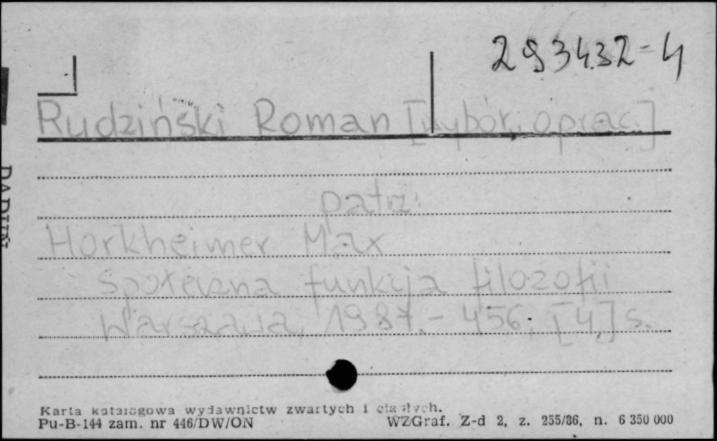 293432-4
Rudziński Roman [wybór, oprac.]
patrz:
Horkheimer Max
Społeczna funkcja filozofii
Warszawa, 1987. - 456, [4] s.
Karta katalogowa wydawnictw zwartych i ciągłych.
Pu-B-144 zam. nr 446/DW/ON WZGraf. Z-d 2, z. 255/86, n. 6 350 000